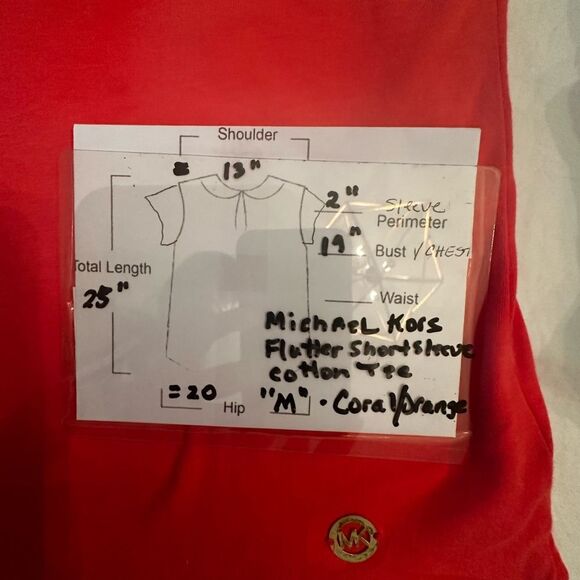 Shoulder
= 13"
2" Sleeve
Perimeter
19" Bust / CHEST
Total Length
25"
Waist
Michael Kors
Flutter Short Sleeve
cotton Tee
= 20 Hip "M" · Coral/Orange
MK